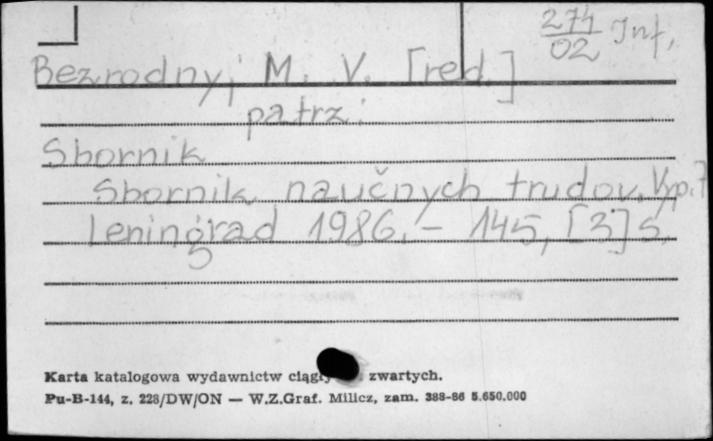 271/02 Inf.
Bezrodnyj M. V. [red.]
patrz:
Sbornik
Sbornik naučnych trudov. Vyp. 7
Leningrad 1986. – 145, [3] s.
Karta katalogowa wydawnictw zwartych.
Pu-B-144, z. 228/DW/ON — W.Z.Graf. Milicz, zam. 388-86 5.650.000